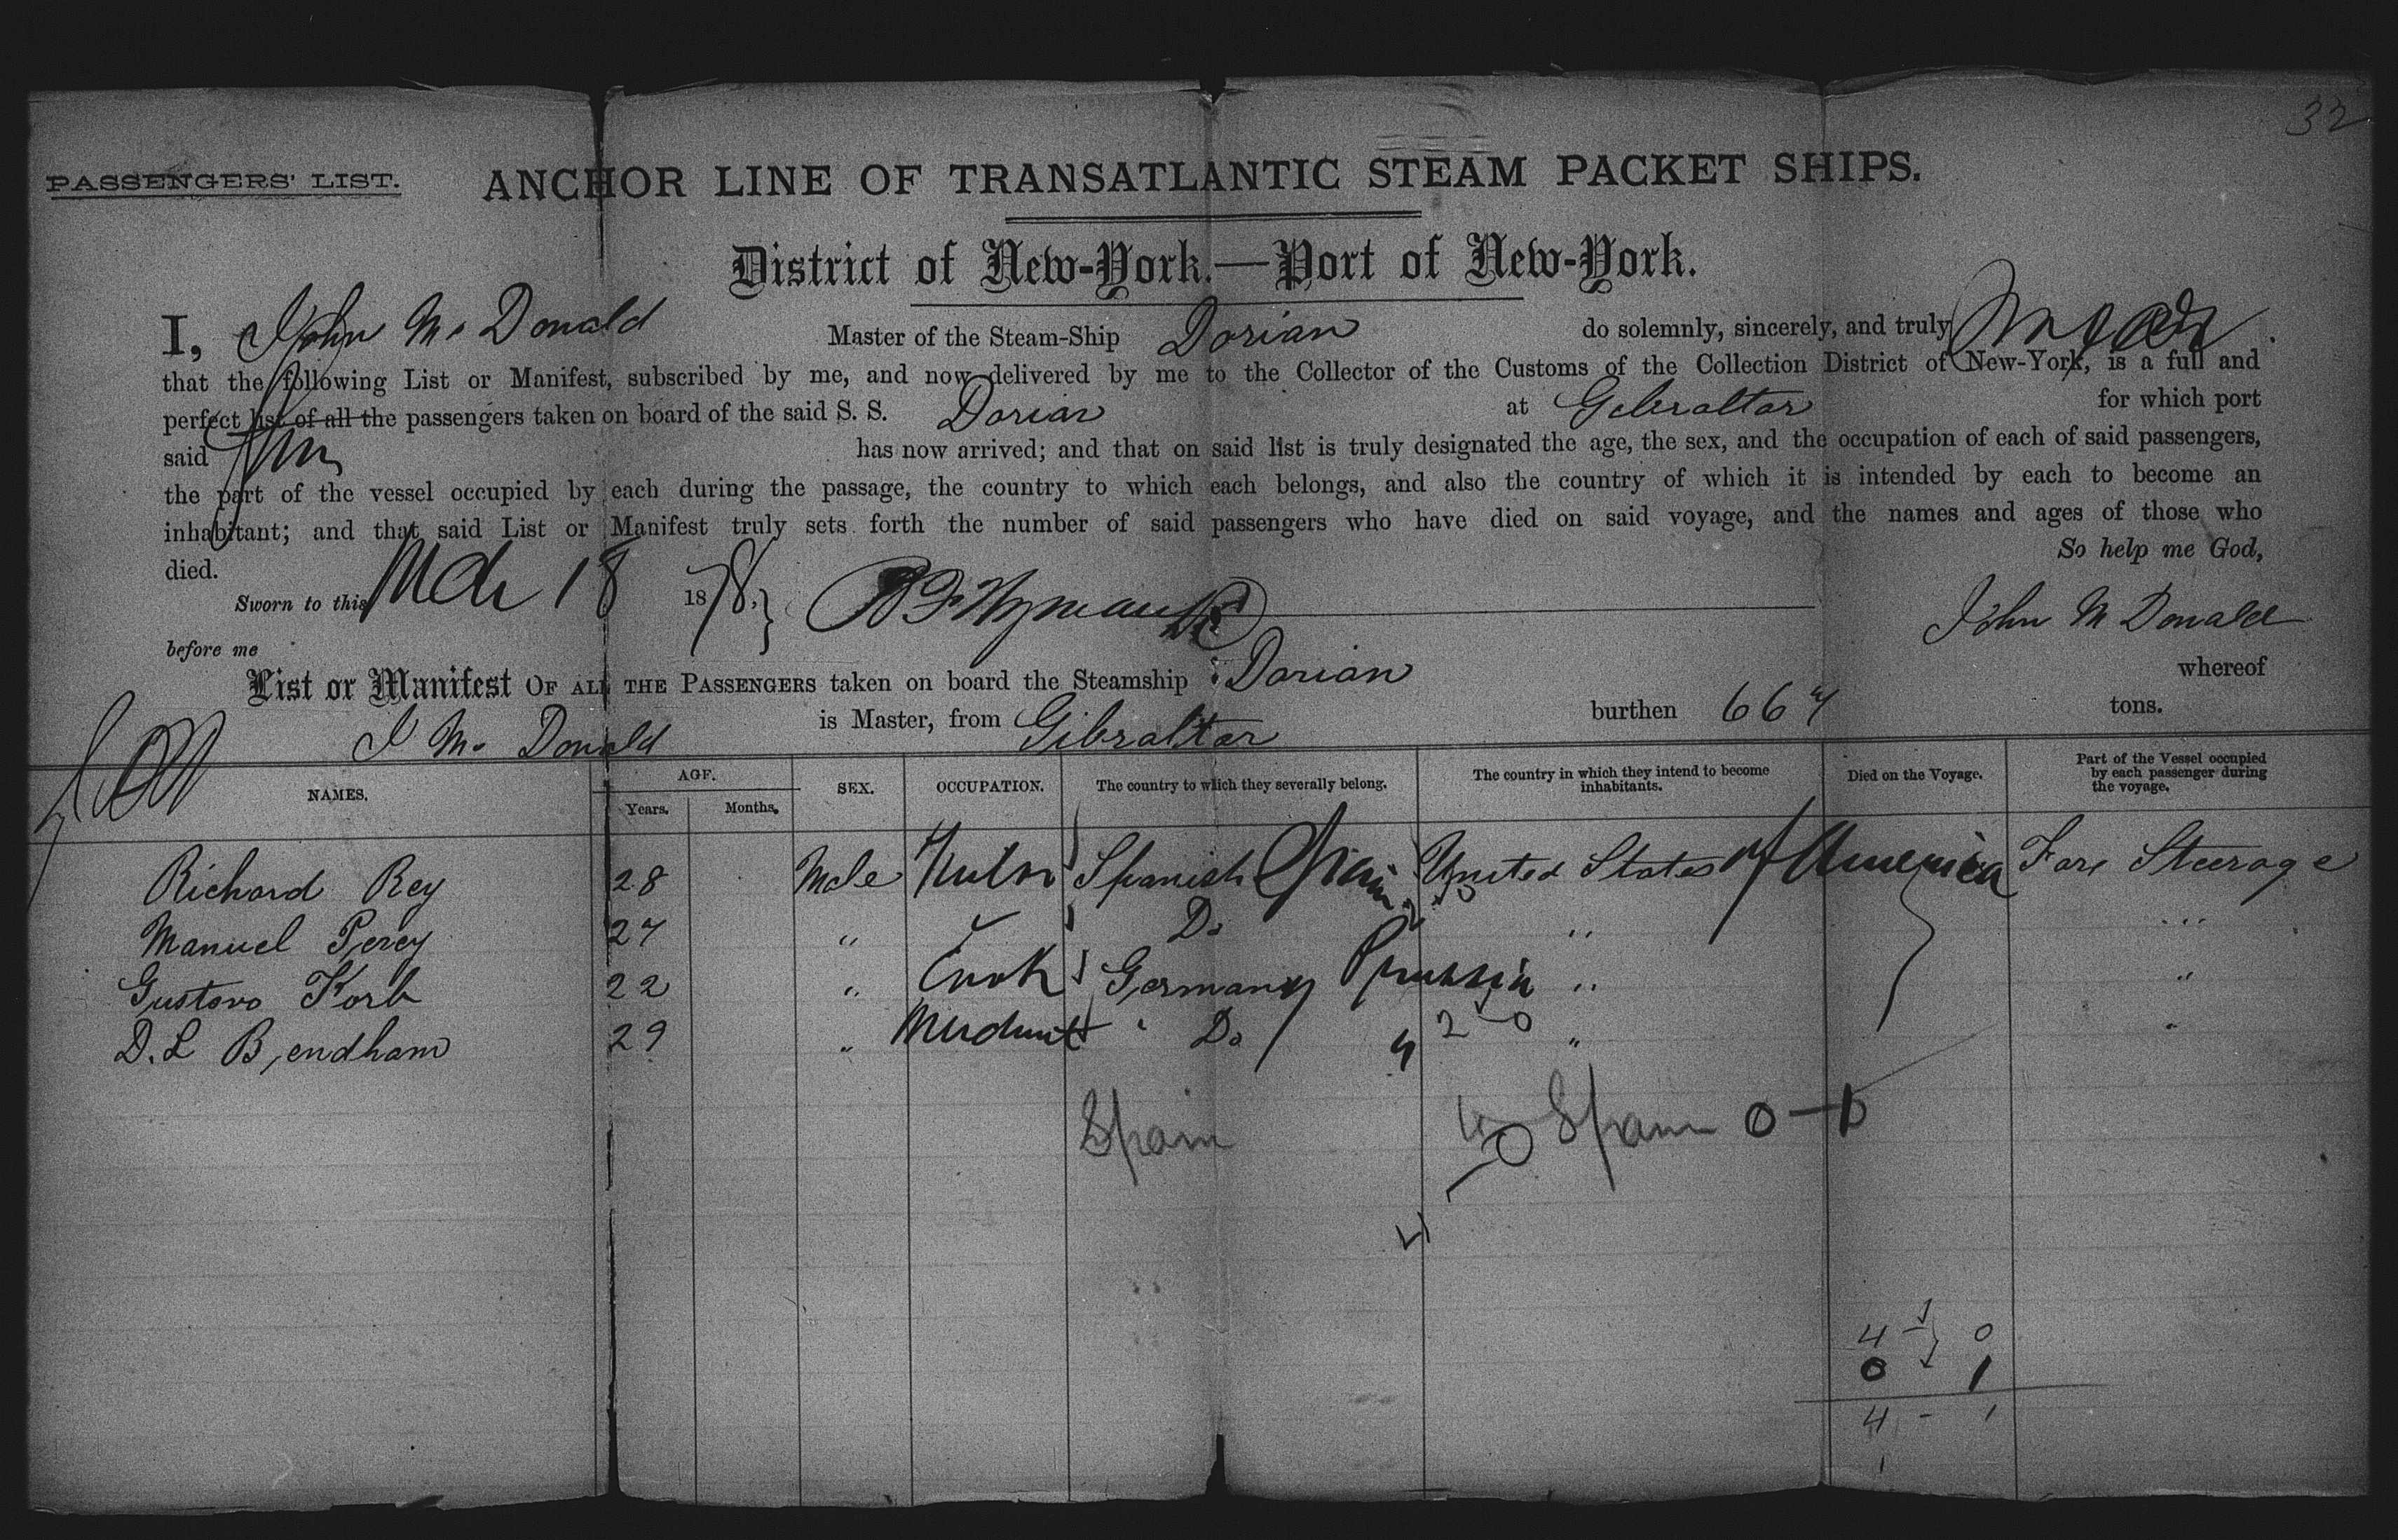 32
PASSENGERS' LIST. ANCHOR LINE OF TRANSATLANTIC STEAM PACKET SHIPS.
District of New-York.—Port of New-York.
I, John Mc Donald Master of the Steam-Ship Dorian do solemnly, sincerely, and truly
that the following List or Manifest, subscribed by me, and now delivered by me to the Collector of the Customs of the Collection District of New-York, is a full and
perfect list of all the passengers taken on board of the said S. S. Dorian at Gibraltar for which port
said has now arrived; and that on said list is truly designated the age, the sex, and the occupation of each of said passengers,
the part of the vessel occupied by each during the passage, the country to which each belongs, and also the country of which it is intended by each to become an
inhabitant; and that said List or Manifest truly sets forth the number of said passengers who have died on said voyage, and the names and ages of those who
died. So help me God,
Sworn to this Mch 18 1878. John Mc Donald
before me
List or Manifest OF ALL THE PASSENGERS taken on board the Steamship Dorian whereof
J Mc Donald is Master, from Gibraltar burthen 667 tons.
NAMES. AGE. Years. Months. SEX. OCCUPATION. The country to which they severally belong. The country in which they intend to become inhabitants. Died on the Voyage. Part of the Vessel occupied by each passenger during the voyage.
Richard Rey 28 Male Spanish Spain United States of America Fore Steerage
Manuel Perey 27 " Do " "
Gustavo Korb 22 " Cook Germany Prussia " "
D. L Bendham 29 " Merchant Do 4 2-0 " "
Spain Spain 0-1
4
4 - 0
0 - 1
4 - 1
1